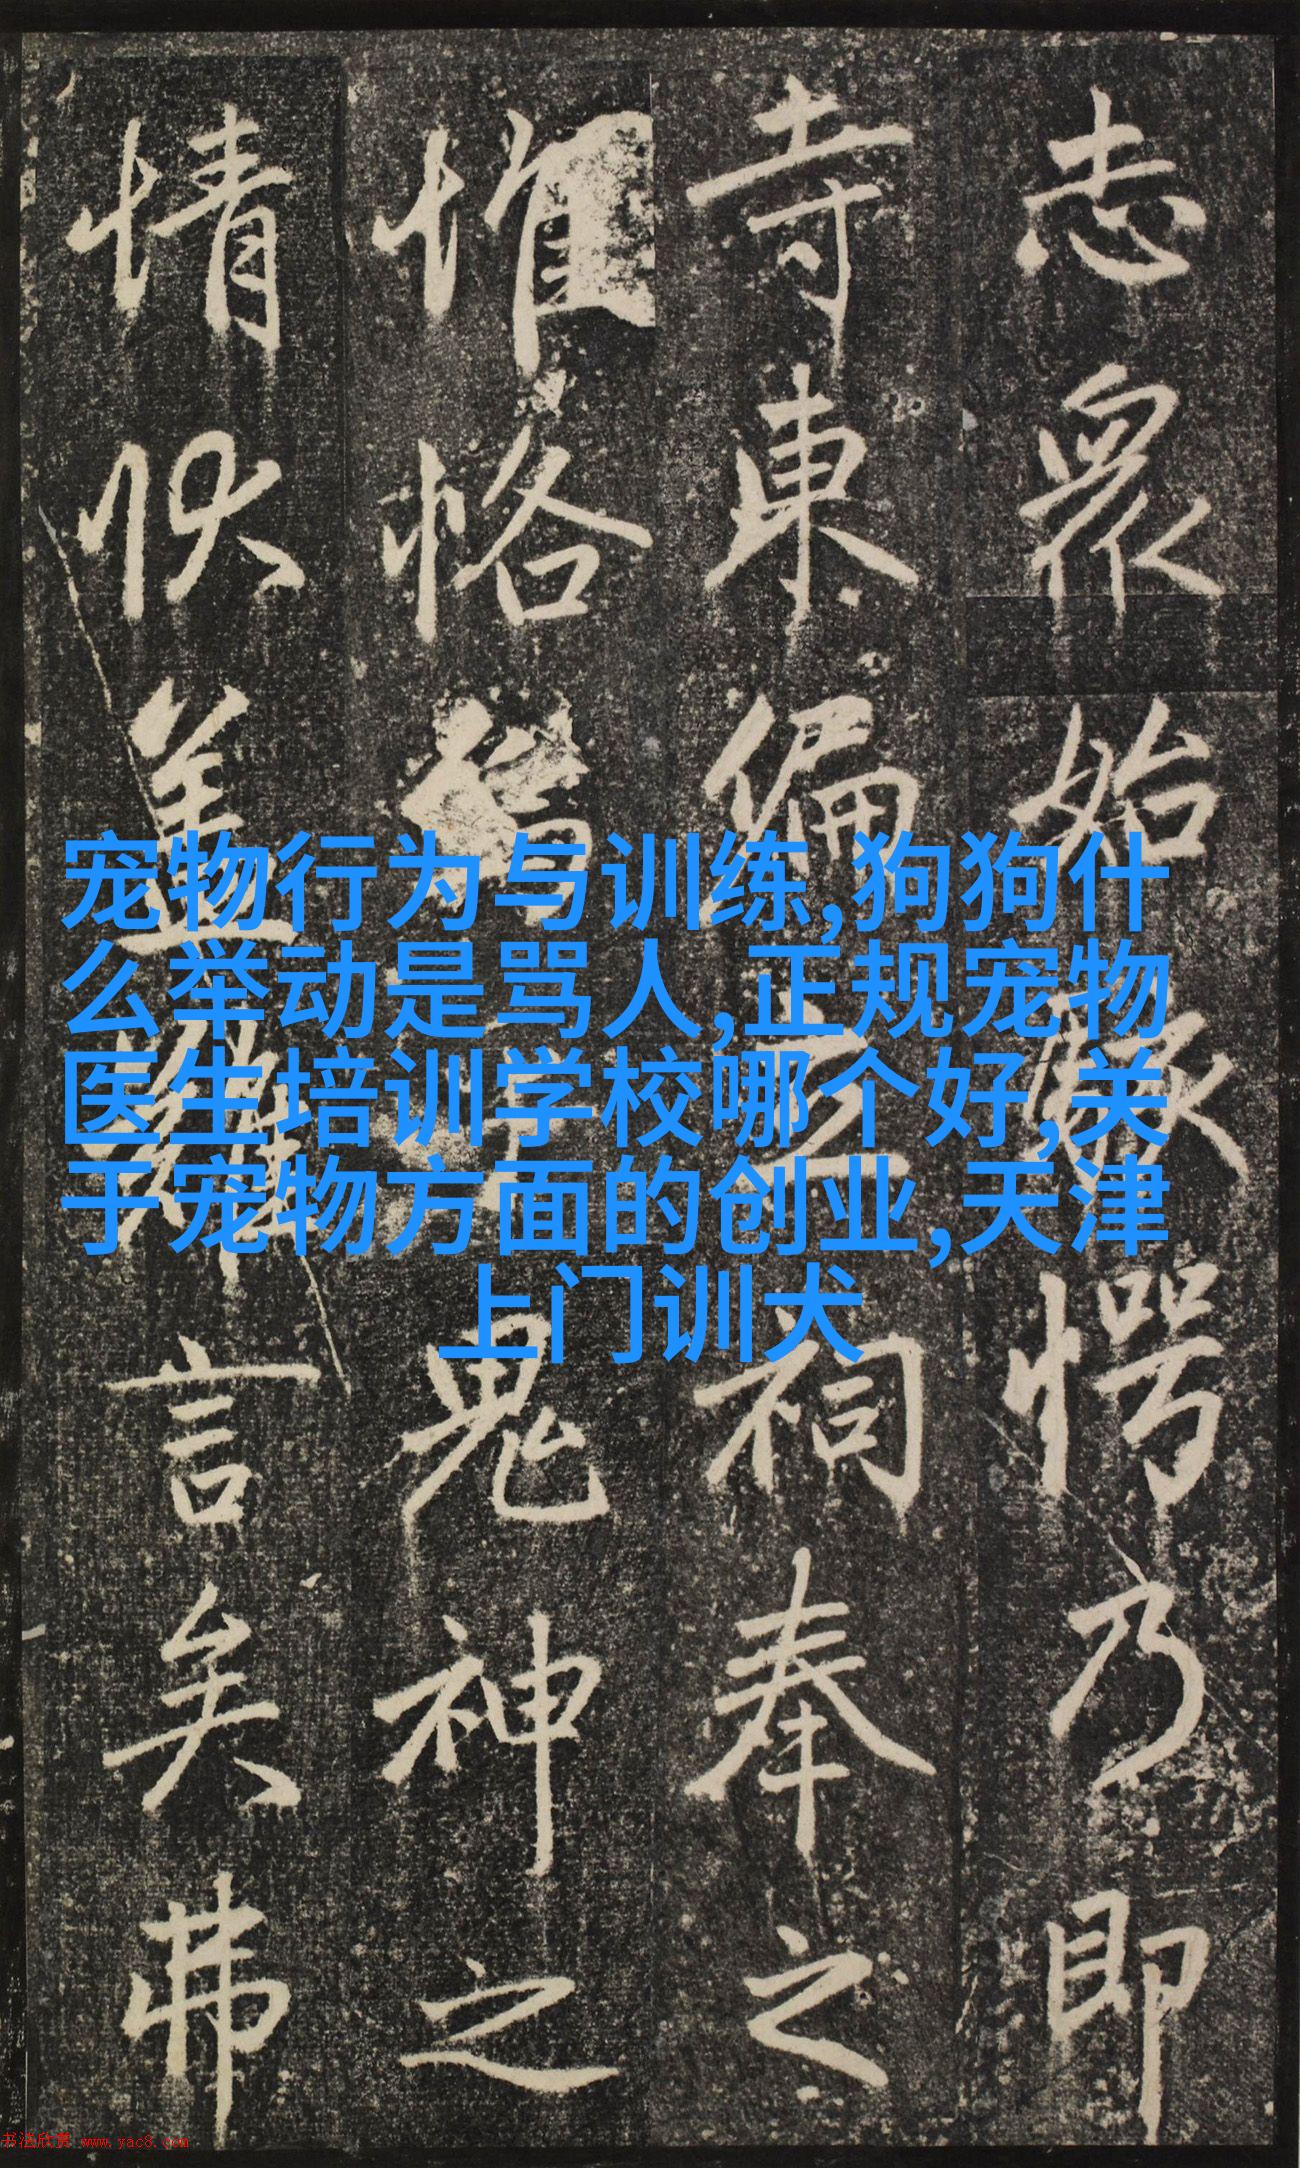 志眾始駭愕乃即
寺東偏立祠奉之
惟恪鬼神之
情伏盖難言矣弗
宠物行为与训练,狗狗什
么举动是骂人,正规宠物
医生培训学校哪个好,关
于宠物方面的创业,天津
上门训犬
书法欣赏 www.yac8.com